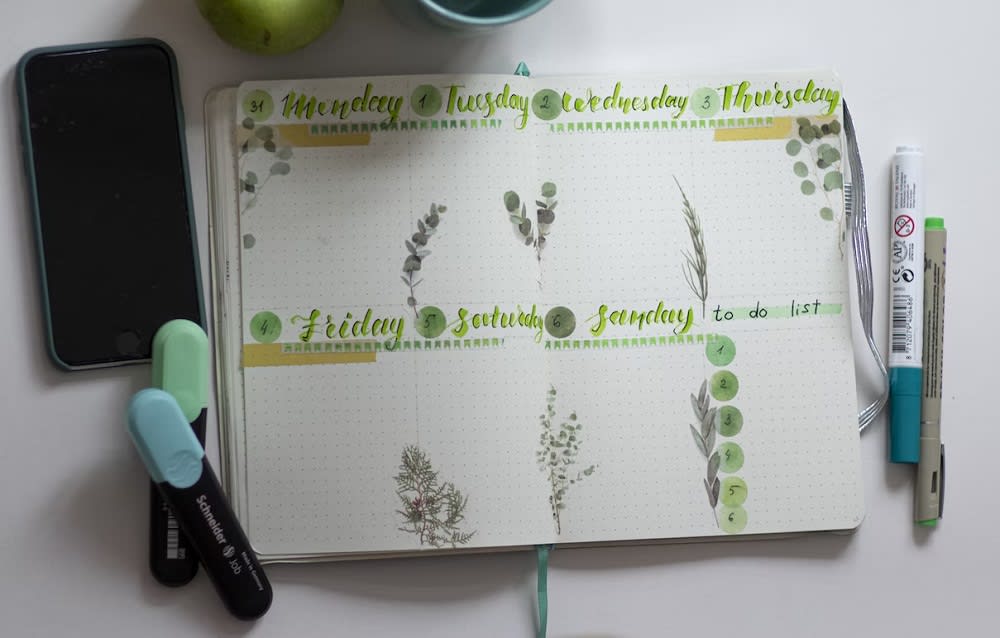 31 Monday 1 Tuesday 2 Wednesday 3 Thursday
4 Friday 5 Saturday 6 Sunday to do list
1
2
3
4
5
6
Schneider Job
Made in Germany
CE AP
8712079506486